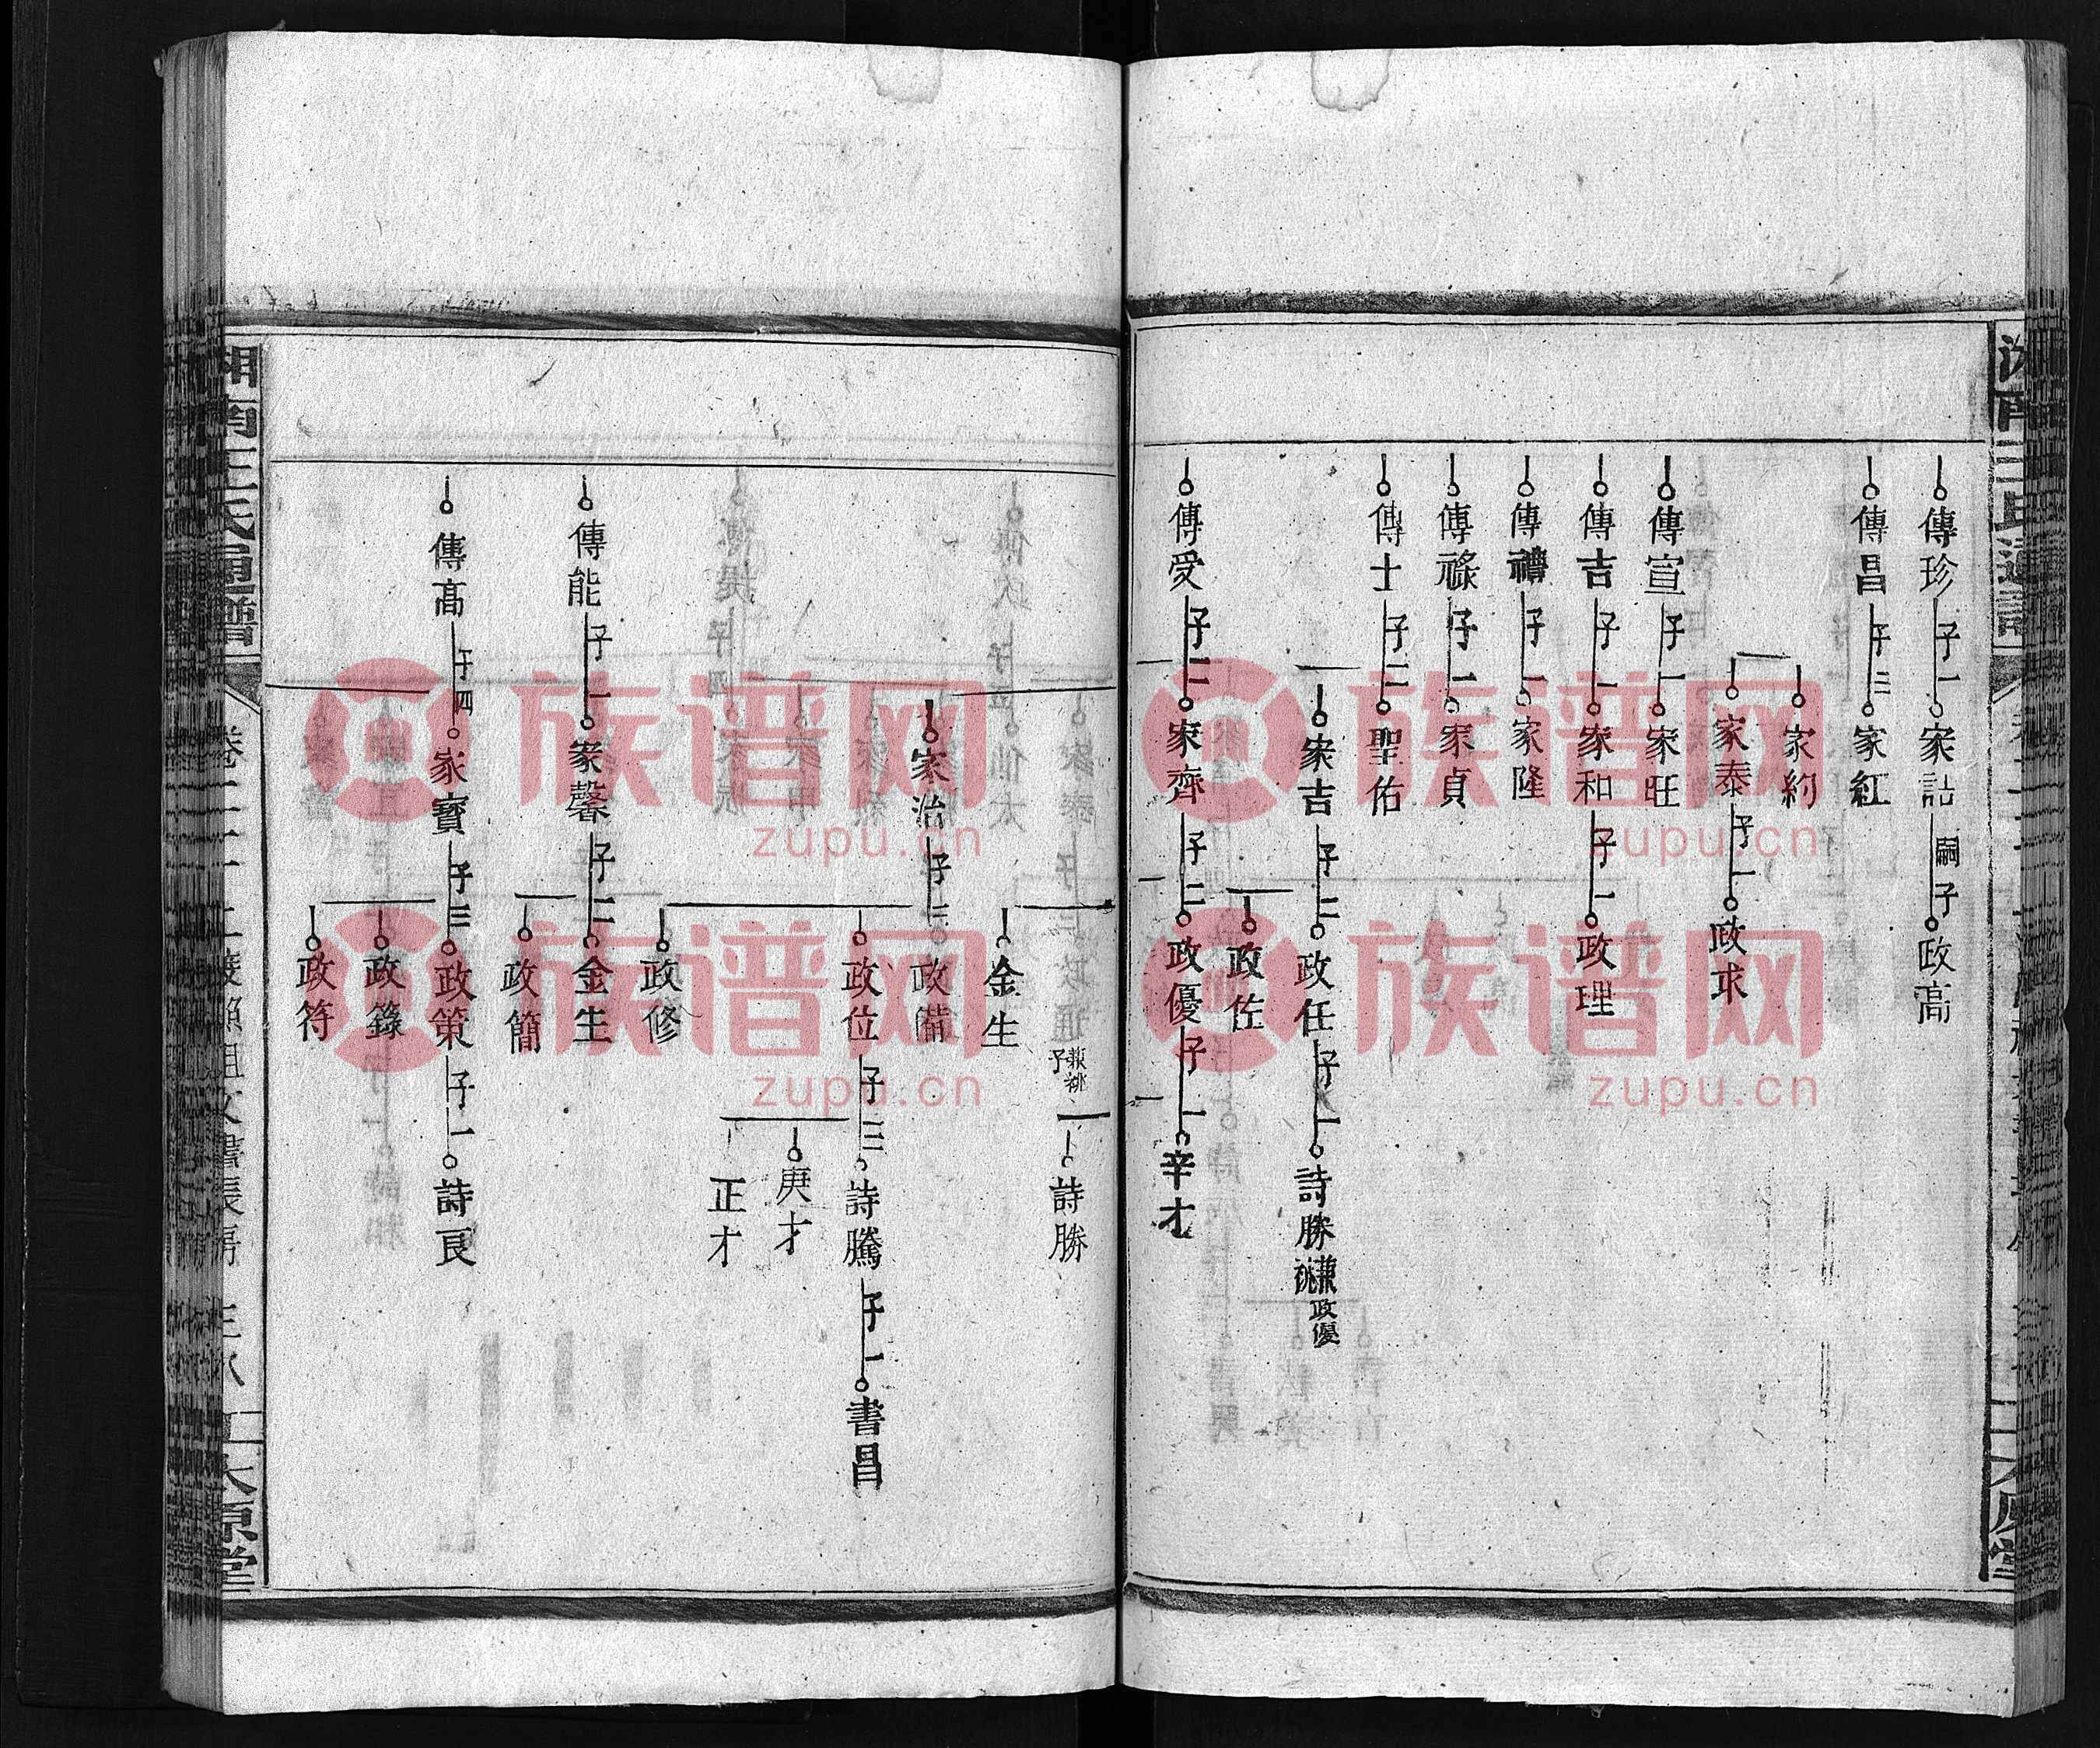 傳珍 子一 家詁 嗣子 政高
傳昌 子三 家紅
家約
家泰 子一 政求
傳宣 子一 家旺
傳吉 子一 家和 子一 政理
傳禮 子一 家隆
傳祿 子一 家貞
傳士 子二 聖佑
家吉 子二 政任 子一 詩勝 兼祧政優
政佐
傳受 子二 家齊 子二 政優 子一 辛才
兼祧子 詩勝
金生
家治 子三 政備
政位 子三 詩騰 子一 書昌
庚才
正才
政修
傳能 子一 家馨 子二 金生
政簡
傳高 子四 家寶 子三 政策 子一 詩良
政錄
政符
湘南王氏通譜
族谱网
zupu.cn
族谱网
zupu.cn
族谱网
zupu.cn
族谱网
zupu.cn